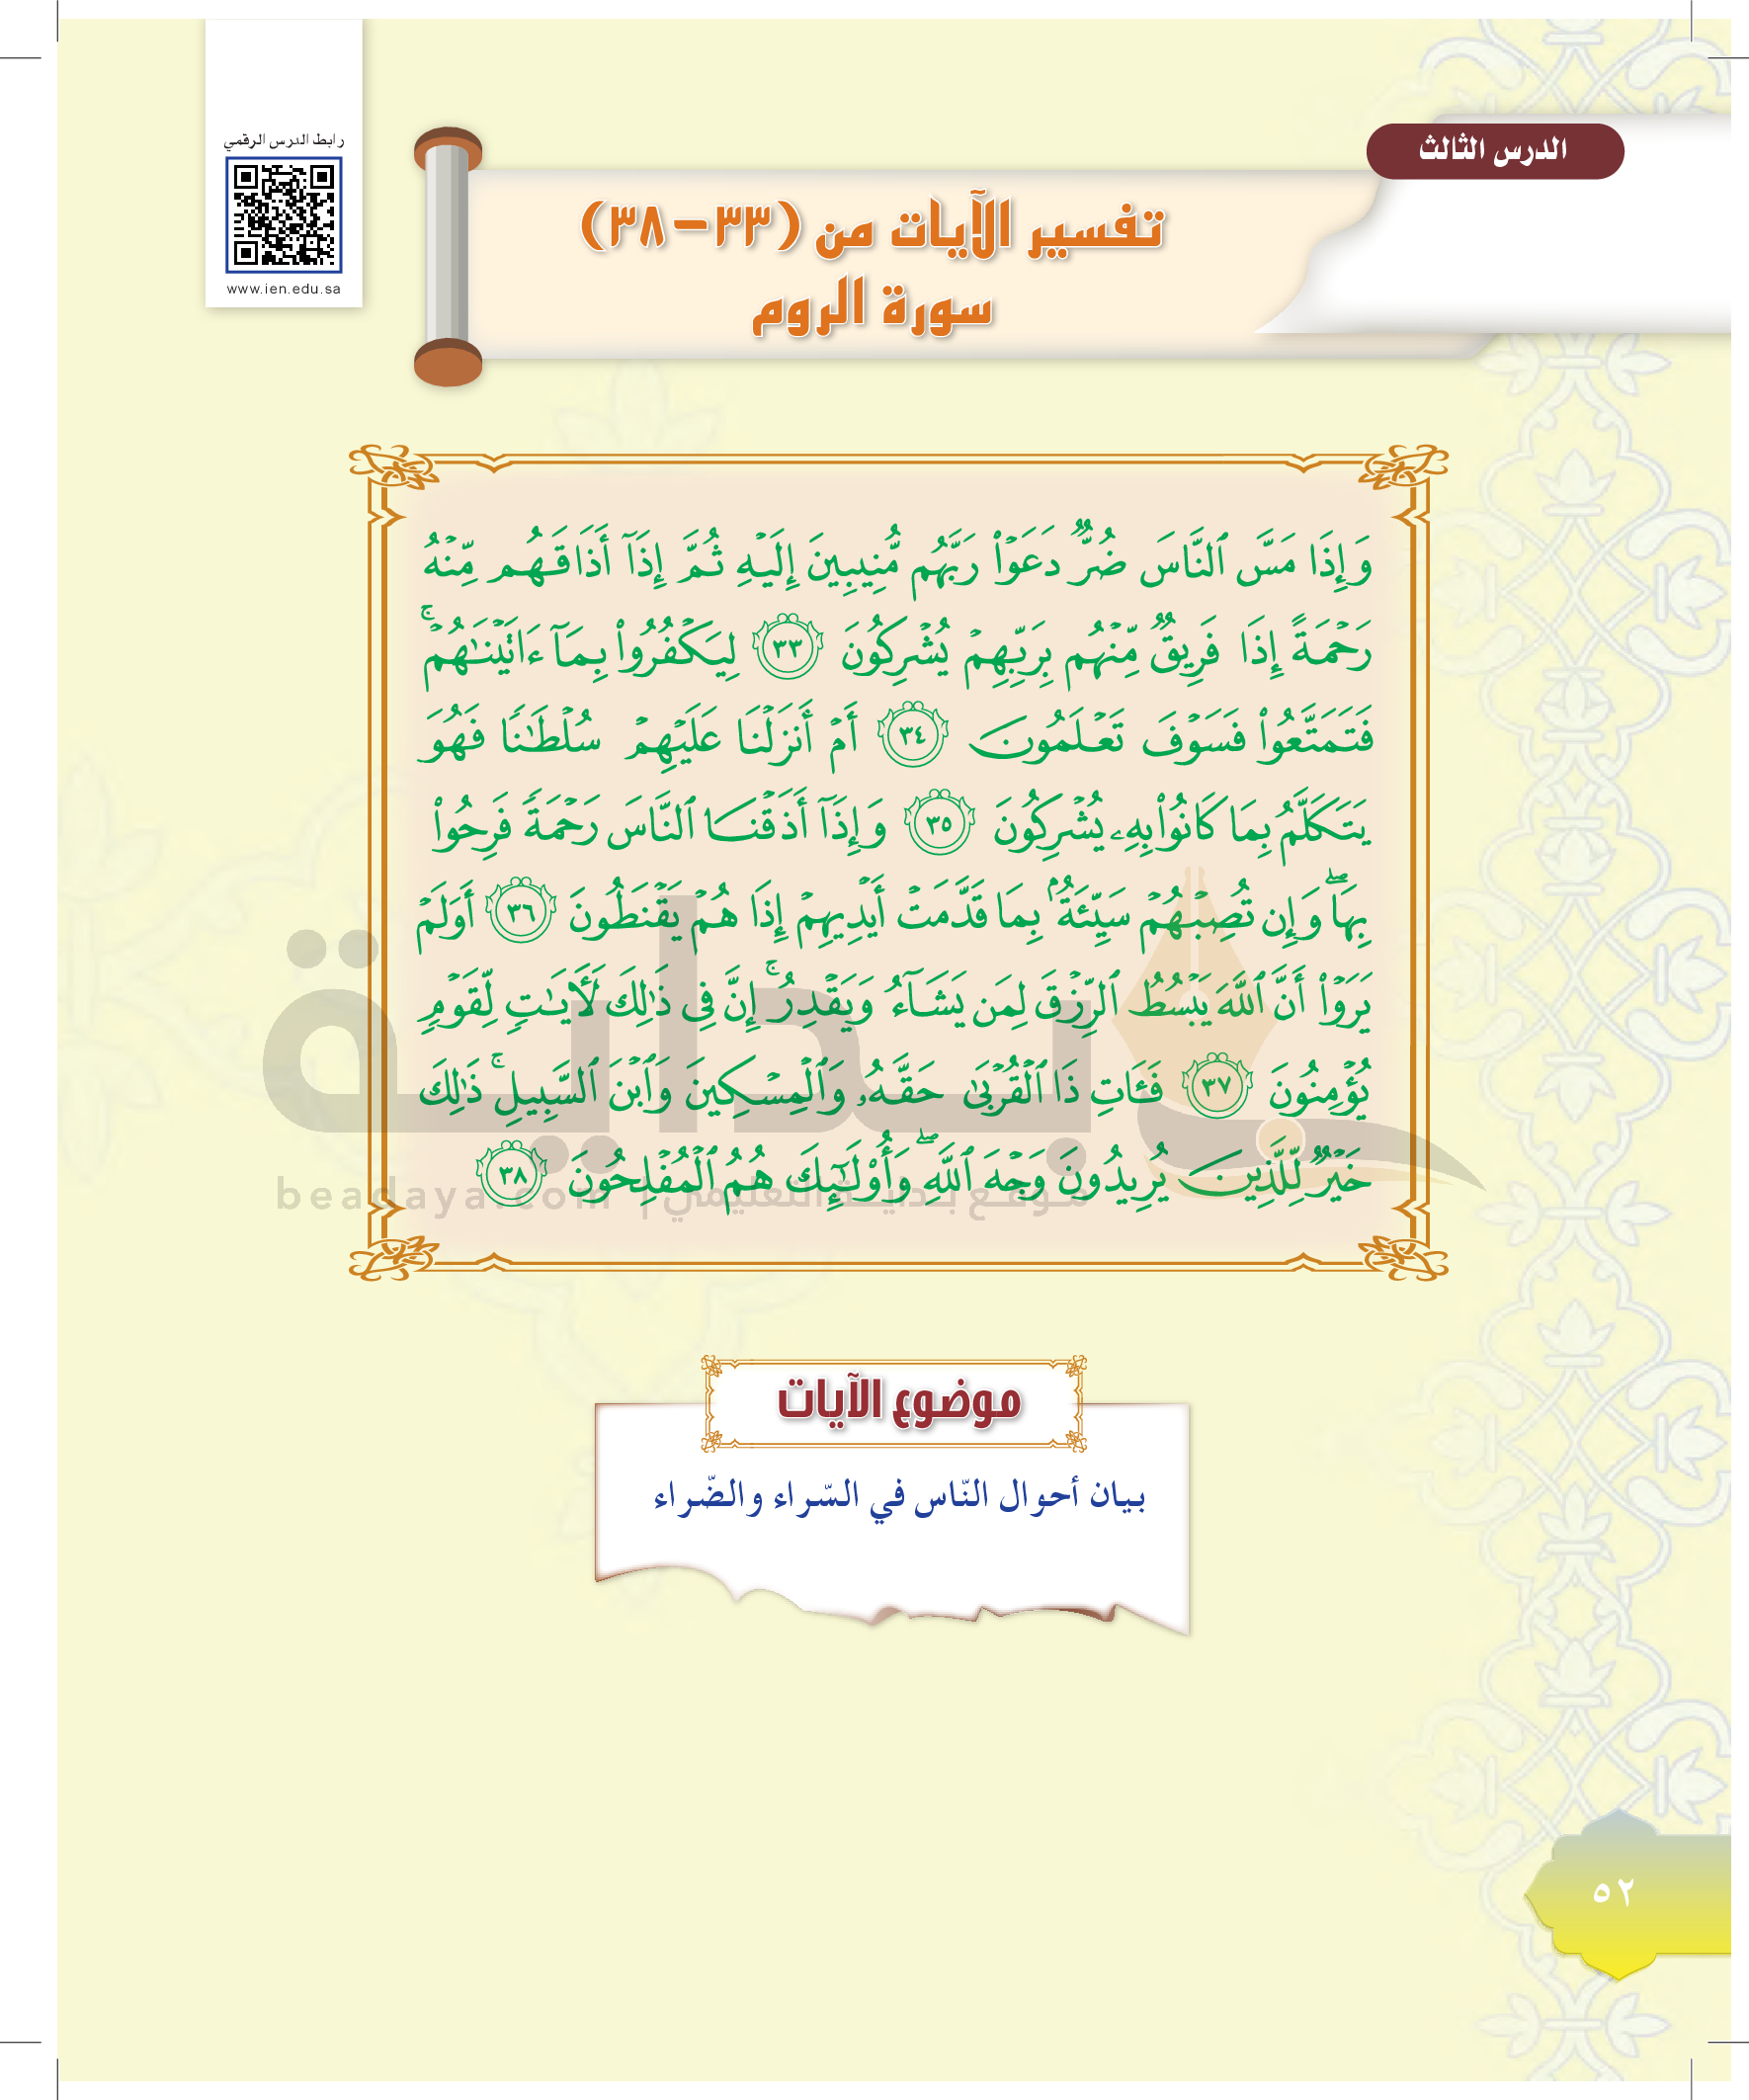 رابط الدرس الرقمي
www.ien.edu.sa
الدرس الثالث
تفسير الآيات من (٣٣-٣٨)
سورة الروم
وَإِذَا مَسَّ ٱلنَّاسَ ضُرٌّ دَعَوۡاْ رَبَّهُم مُّنِيبِينَ إِلَيۡهِ ثُمَّ إِذَآ أَذَاقَهُم مِّنۡهُ
رَحۡمَةً إِذَا فَرِيقٌ مِّنۡهُم بِرَبِّهِمۡ يُشۡرِكُونَ ٣٣ لِيَكۡفُرُواْ بِمَآ ءَاتَيۡنَٰهُمۡۚ
فَتَمَتَّعُواْ فَسَوۡفَ تَعۡلَمُونَ ٣٤ أَمۡ أَنزَلۡنَا عَلَيۡهِمۡ سُلۡطَٰنًا فَهُوَ
يَتَكَلَّمُ بِمَا كَانُواْ بِهِۦ يُشۡرِكُونَ ٣٥ وَإِذَآ أَذَقۡنَا ٱلنَّاسَ رَحۡمَةً فَرِحُواْ
بِهَاۖ وَإِن تُصِبۡهُمۡ سَيِّئَةُۢ بِمَا قَدَّمَتۡ أَيۡدِيهِمۡ إِذَا هُمۡ يَقۡنَطُونَ ٣٦ أَوَلَمۡ
يَرَوۡاْ أَنَّ ٱللَّهَ يَبۡسُطُ ٱلرِّزۡقَ لِمَن يَشَآءُ وَيَقۡدِرُۚ إِنَّ فِي ذَٰلِكَ لَأٓيَٰتٖ لِّقَوۡمٖ
يُؤۡمِنُونَ ٣٧ فَـَٔاتِ ذَا ٱلۡقُرۡبَىٰ حَقَّهُۥ وَٱلۡمِسۡكِينَ وَٱبۡنَ ٱلسَّبِيلِۚ ذَٰلِكَ
خَيۡرٌ لِّلَّذِينَ يُرِيدُونَ وَجۡهَ ٱللَّهِۖ وَأُوْلَٰٓئِكَ هُمُ ٱلۡمُفۡلِحُونَ ٣٨
بداية
موقع بداية التعليمي | beadaya.com
موضوع الآيات
بيان أحوال النّاس في السّراء والضّراء
٥٢